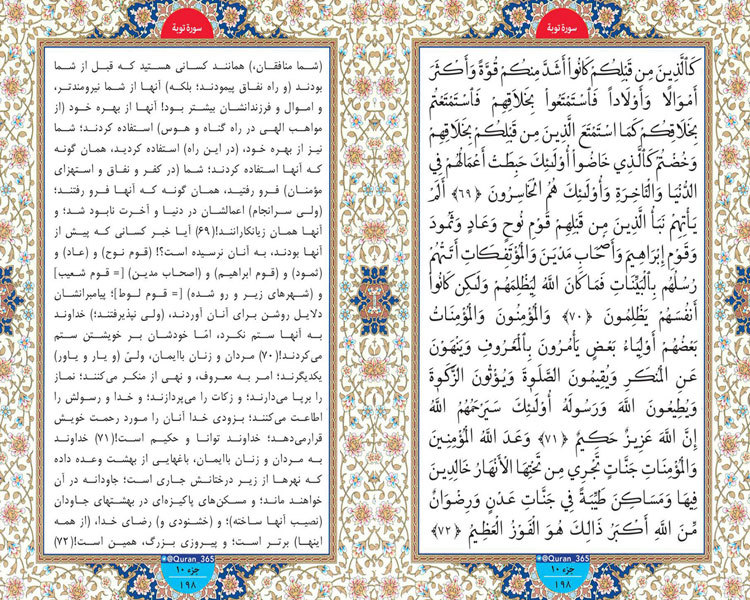 سورة توبة
كَالَّذِينَ مِن قَبْلِكُمْ كَانُوا أَشَدَّ مِنكُمْ قُوَّةً وَأَكْثَرَ
أَمْوَالًا وَأَوْلَاداً فَاسْتَمْتَعُوا بِخَلَاقِهِمْ فَاسْتَمْتَعْتُم
بِخَلَاقِكُمْ كَمَا اسْتَمْتَعَ الَّذِينَ مِن قَبْلِكُمْ بِخَلَاقِهِمْ
وَخُضْتُمْ كَالَّذِي خَاضُوا أُوْلَئِكَ حَبِطَتْ أَعْمَالُهُمْ فِي
الدُّنْيَا وَالْآخِرَةِ وَأُوْلَئِكَ هُمُ الْخَاسِرُونَ ﴿٦٩﴾ أَلَمْ
يَأْتِهِمْ نَبَأُ الَّذِينَ مِن قَبْلِهِمْ قَوْمِ نُوحٍ وَعَادٍ وَثَمُودَ
وَقَوْمِ إِبْرَاهِيمَ وَأَصْحَابِ مَدْيَنَ وَالْمُؤْتَفِكَاتِ أَتَتْهُمْ
رُسُلُهُم بِالْبَيِّنَاتِ فَمَا كَانَ اللَّهُ لِيَظْلِمَهُمْ وَلَكِن كَانُوا
أَنفُسَهُمْ يَظْلِمُونَ ﴿٧٠﴾ وَالْمُؤْمِنُونَ وَالْمُؤْمِنَاتُ
بَعْضُهُمْ أَوْلِيَاءُ بَعْضٍ يَأْمُرُونَ بِالْمَعْرُوفِ وَيَنْهَوْنَ
عَنِ الْمُنكَرِ وَيُقِيمُونَ الصَّلَوةَ وَيُؤْتُونَ الزَّكَوةَ
وَيُطِيعُونَ اللَّهَ وَرَسُولَهُ أُوْلَئِكَ سَيَرْحَمُهُمُ اللَّهُ
إِنَّ اللَّهَ عَزِيزٌ حَكِيمٌ ﴿٧١﴾ وَعَدَ اللَّهُ الْمُؤْمِنِينَ
وَالْمُؤْمِنَاتِ جَنَّاتٍ تَجْرِي مِن تَحْتِهَا الْأَنْهَارُ خَالِدِينَ
فِيهَا وَمَسَاكِنَ طَيِّبَةً فِي جَنَّاتِ عَدْنٍ وَرِضْوَانٌ
مِّنَ اللَّهِ أَكْبَرُ ذَالِكَ هُوَ الْفَوْزُ الْعَظِيمُ ﴿٧٢﴾
@Quran_365
جزء ۱۰
۱۹۸
سورة توبة
(شما منافقان،) همانند کسانی هستید که قبل از شما
بودند (و راه نفاق پیمودند؛ بلکه) آنها از شما نیرومندتر،
و اموال و فرزندانشان بیشتر بود! آنها از بهره خود (از
مواهب الهی در راه گناه و هوس) استفاده کردند؛ شما
نیز از بهره خود، (در این راه) استفاده کردید، همان گونه
که آنها استفاده کردند؛ شما (در کفر و نفاق و استهزای
مؤمنان) فرو رفتید، همان گونه که آنها فرو رفتند؛
(ولی سرانجام) اعمالشان در دنیا و آخرت نابود شد؛ و
آنها همان زیانکارانند!(۶۹) آیا خبر کسانی که پیش از
آنها بودند، به آنان نرسیده است؟! (قوم نوح) و (عاد) و
(ثمود) و (قوم ابراهیم) و (اصحاب مدین) [= قوم شعیب]
و (شهرهای زیر و رو شده) [= قوم لوط]؛ پیامبرانشان
دلایل روشن برای آنان آوردند، (ولی نپذیرفتند؛) خداوند
به آنها ستم نکرد، امّا خودشان بر خویشتن ستم
می‌کردند!(۷۰) مردان و زنان باایمان، ولیّ (و یار و یاور)
یکدیگرند؛ امر به معروف، و نهی از منکر می‌کنند؛ نماز
را برپا می‌دارند؛ و زکات را می‌پردازند؛ و خدا و رسولش را
اطاعت می‌کنند؛ بزودی خدا آنان را مورد رحمت خویش
قرارمی‌دهد؛ خداوند توانا و حکیم است!(۷۱) خداوند
به مردان و زنان باایمان، باغهایی از بهشت وعده داده
که نهرها از زیر درختانش جاری است؛ جاودانه در آن
خواهند ماند؛ و مسکن‌های پاکیزه‌ای در بهشتهای جاودان
(نصیب آنها ساخته)؛ و (خشنودی و) رضای خدا، (از همه
اینها) برتر است؛ و پیروزی بزرگ، همین است!(۷۲)
@Quran_365
جزء ۱۰
۱۹۸